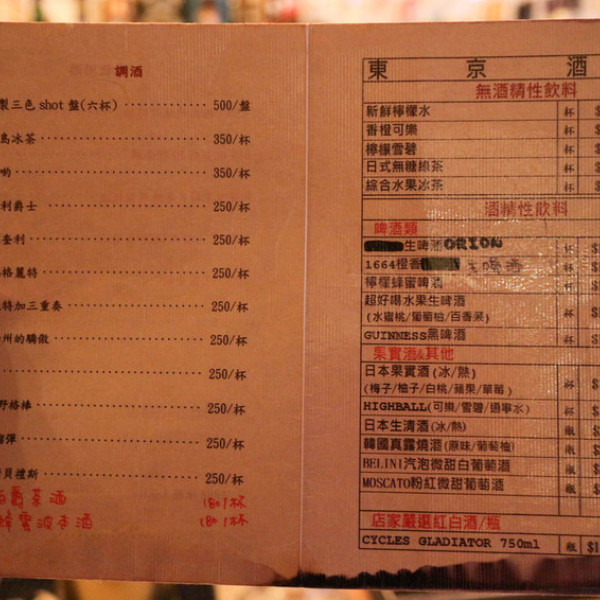 調酒
製三色 shot 盤(六杯) 500/盤
島冰茶 350/杯
喲 350/杯
利爵士 250/杯
奎利 250/杯
格麗特 250/杯
特加三重奏 250/杯
州的驕傲 250/杯
250/杯
野格棒 250/杯
榴彈 250/杯
貝禮斯 250/杯
爵茶酒 180/杯
蜂蜜波本酒 180/杯
東京酒
無酒精性飲料
新鮮檸檬水 杯 $
香橙可樂 杯 $
檸檬雪碧 杯 $
日式無糖綠茶 杯 $
綜合水果冰茶 杯 $
酒精性飲料
啤酒類
生啤酒ORION 杯 $
1664橙香 生啤酒 杯 $
檸檬蜂蜜啤酒 杯 $
超好喝水果生啤酒
(水蜜桃/葡萄柚/百香果) 杯 $
GUINNESS黑啤酒 杯 $
果實酒&其他
日本果實酒(冰/熱)
(梅子/柚子/白桃/蘋果/草莓) 杯 $
HIGHBALL(可樂/雪碧/通寧水) 杯 $
日本生清酒(冰/熱) 瓶 $
韓國真露燒酒(原味/葡萄柚) 瓶 $
BELINI汽泡微甜白葡萄酒 瓶 $
MOSCATO粉紅微甜葡萄酒 瓶 $
店家嚴選紅白酒/瓶
CYCLES GLADIATOR 750ml 瓶 $1